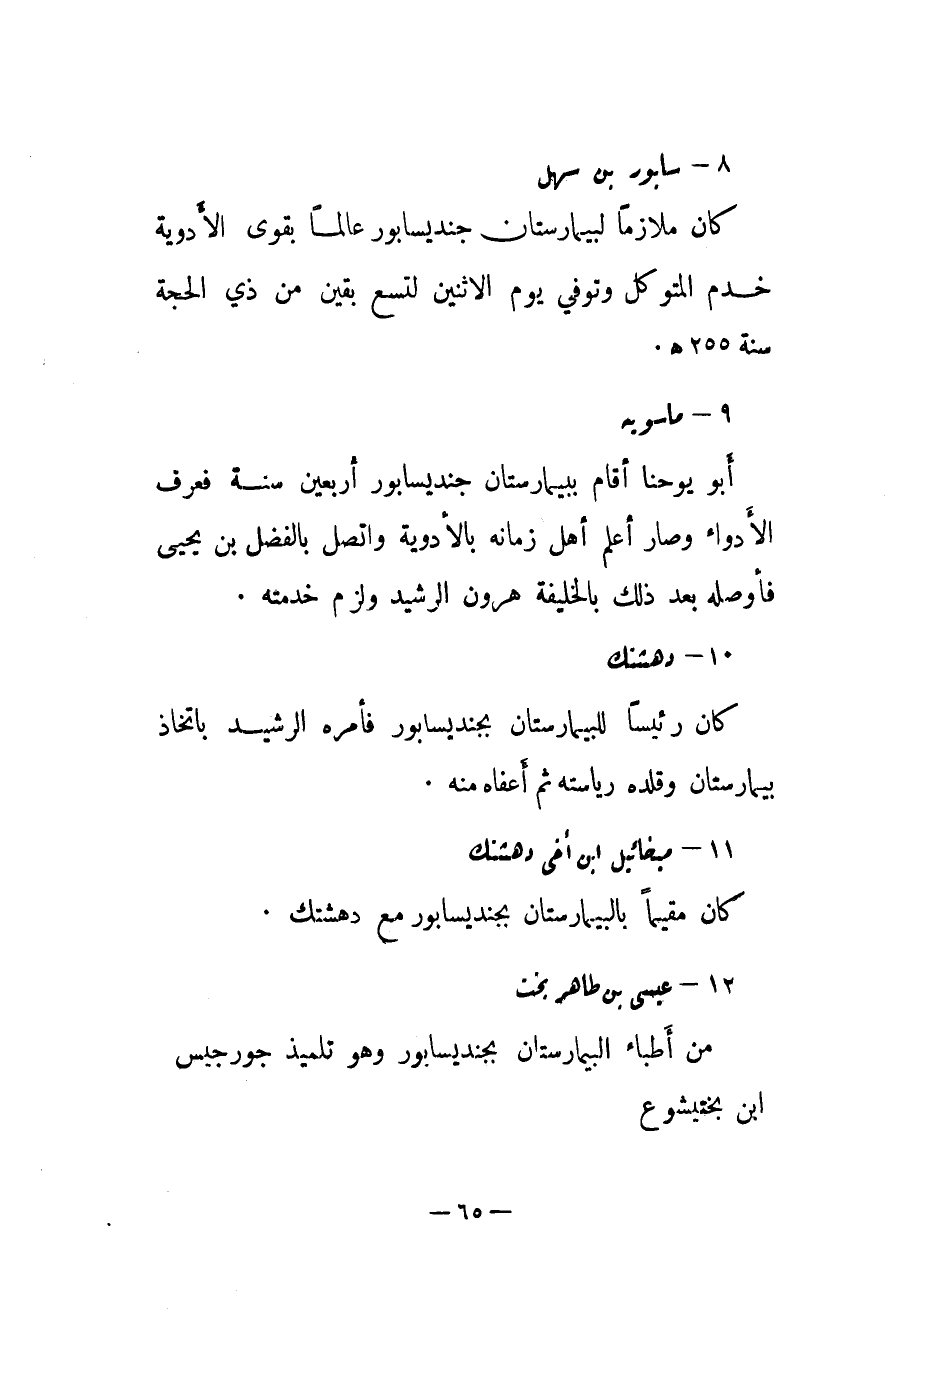 ٨ – سابور بن سهل
كان ملازماً لبيمارستان جنديسابور عالماً بقوى الأدوية
خدم المتوكل وتوفي يوم الاثنين لتسع بقين من ذي الحجة
سنة ٢٥٥ ه ٠
٩ – ماسويه
أبو يوحنا أقام ببيمارستان جنديسابور أربعين سنة فعرف
الأدواء وصار أعلم أهل زمانه بالأدوية واتصل بالفضل بن يحيى
فأوصله بعد ذلك بالخليفة هرون الرشيد ولزم خدمته ٠
١٠ – دهشتك
كان رئيساً للبيمارستان بجنديسابور فأمره الرشيد باتخاذ
بيمارستان وقلده رياسته ثم أعفاه منه ٠
١١ – ميخائيل ابن أخي دهشتك
كان مقيماً بالبيمارستان بجنديسابور مع دهشتك ٠
١٢ – عيسى بن طاهر بخت
من أطباء البيمارستان بجنديسابور وهو تلميذ جورجيس
ابن بختيشوع
– ٦٥ –